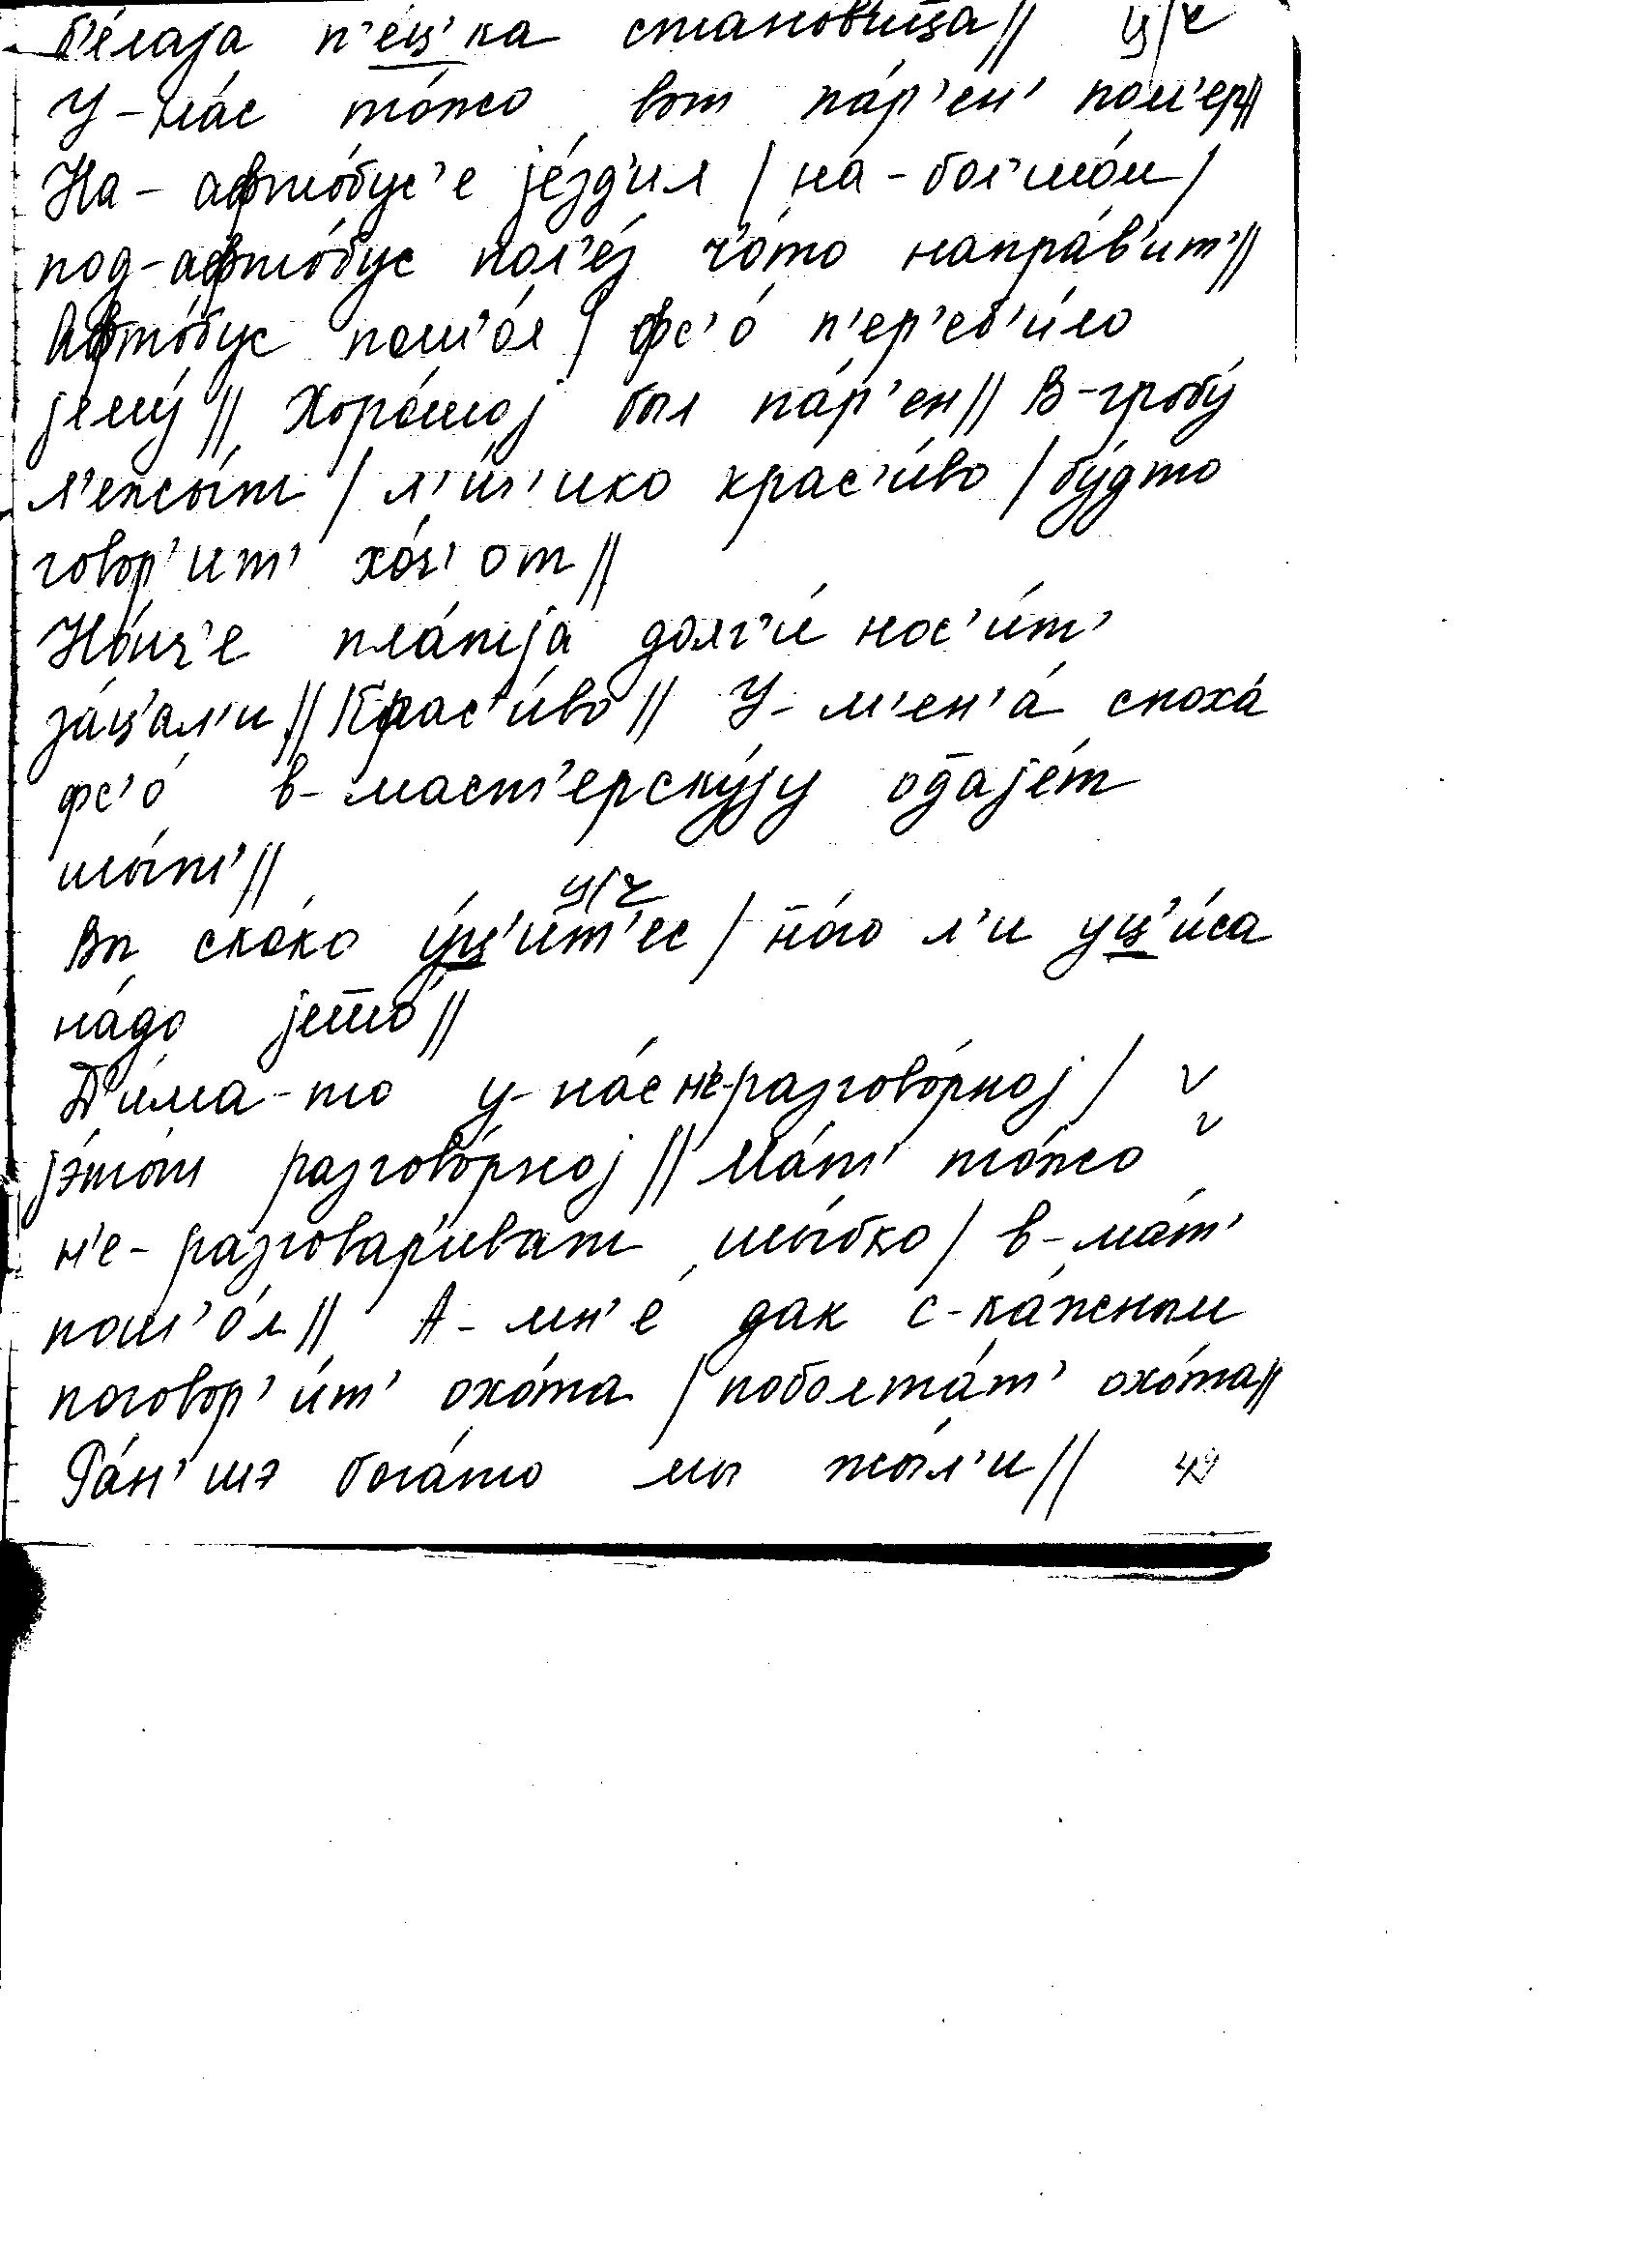 б'е́лаjа п'е́ц'ка станов'и́ц̅а// ц/ч
У-на́с то́жо вот па́р'ен' пом'ер//
На-афто́бус'е jе́зд'ил / на́-бол'шо́м /
под-афто́бус пол'е́з ч'о́то напра́в'ит'//
Афто́бус пош'о́л / фс'о́ п'ер'еб'и́ло
jему́ // Хоро́шоj был па́р'ен// В-гробу́
л'ежы́т / л'и́ч'ико крас'и́во / бу́дто
говор'ит' хо́ч'от //
Но́нч'е пла́тjа долг'и́ нос'и́т'
за́ц'ал'и // Крас'и́во // У-м'ен'а́ сноха́
фс'о́ в-маст'ерску́jу од̅аjе́т
шы́т'//
ц/ч
Вы ско́ко у́ц'и́т'ес / мно́го л'и уц'и́са
на́до jеш̅о́ //
Д'и́ма-то у-на́с н'е-разгово́рноj / v
jэ́тот разгово́рноj // Ма́т' то́жо v
н'е-разгова́р'иват шы́бко / в-ма́т'
пош'о́л // А-мн'е́ дак с-ка́жным
поговор'и́т' охо́та / поболта́т' охо́та//
Ра́н'шэ бога́то мы жы́л'и // 49